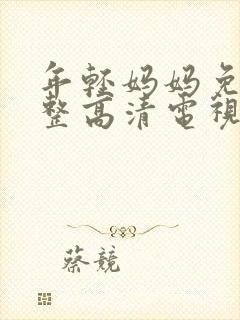 年輕媽媽免
整高清電視
蔡競